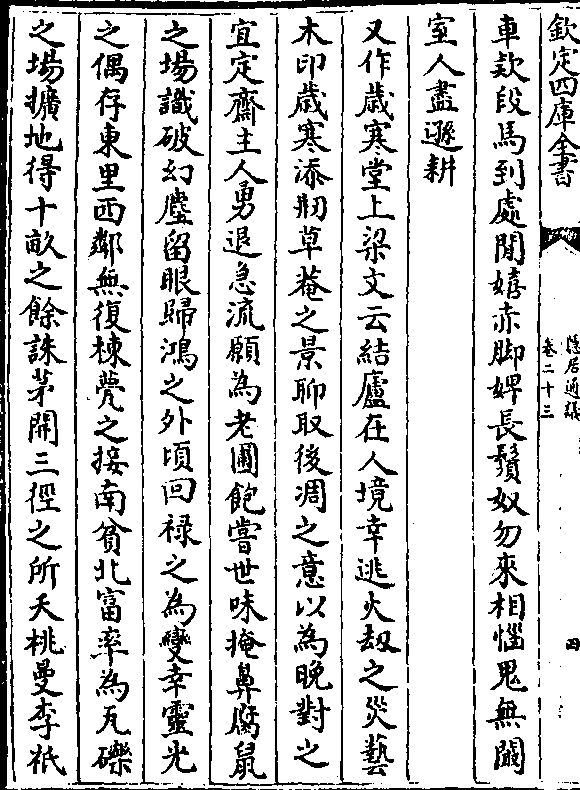 欽定四庫全書
隱居通議
卷二十三
四
車欵段馬到處閒嬉赤脚婢長鬚奴勿來相惱鬼無闞
室人盡遜耕
又作歲寒堂上梁文云結廬在人境幸逃火刼之災藝
木印歲寒添剏草菴之景聊取後凋之意以為晚對之
宜定齋主人勇退急流願為老圃飽嘗世味掩鼻腐鼠
之場識破幻塵留眼歸鴻之外頃回禄之為變幸靈光
之偶存東里西鄰無復棟甍之接南貧北富率為瓦礫
之場擴地得十畝之餘誅茅開三徑之所夭桃曼李祇